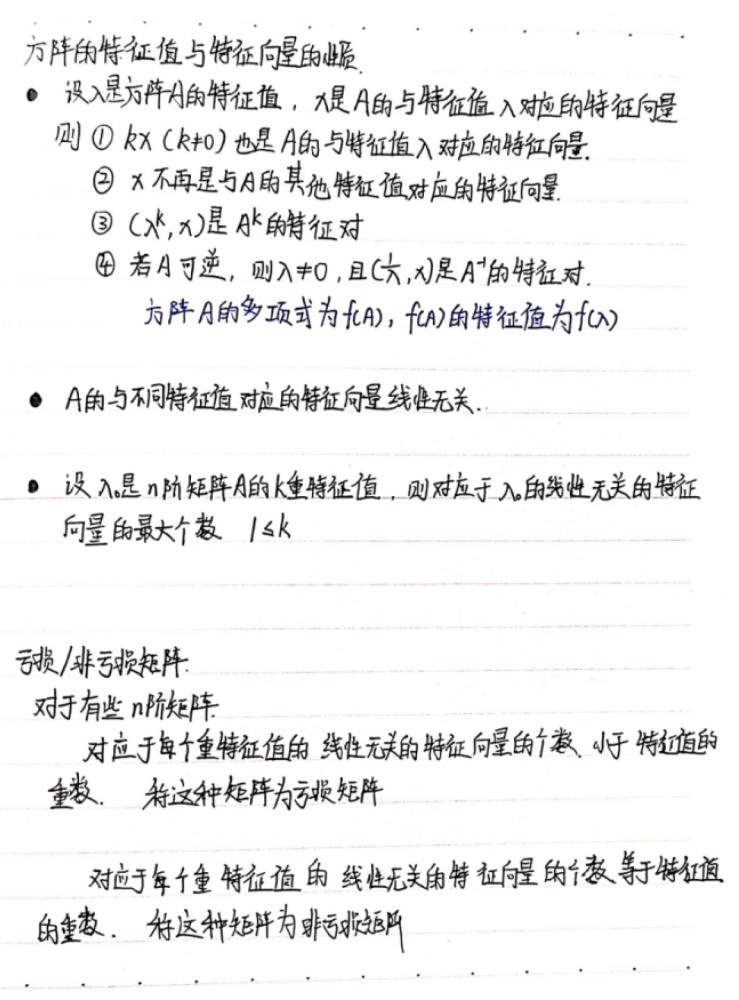 方阵的特征值与特征向量的性质
• 设λ是方阵A的特征值，x是A的与特征值λ对应的特征向量
则 ① kx (k≠0) 也是A的与特征值λ对应的特征向量.
② x 不再是与A的其他特征值对应的特征向量.
③ (λᵏ, x)是 Aᵏ的特征对
④ 若A可逆，则λ≠0，且(1/λ, x)是A⁻¹的特征对.
方阵A的多项式为f(A)，f(A)的特征值为f(λ)
• A的与不同特征值对应的特征向量线性无关.
• 设λ₀是n阶矩阵A的k重特征值，则对应于λ₀的线性无关的特征
向量的最大个数 l≤k
亏损/非亏损矩阵.
对于有些n阶矩阵.
对应于每个重特征值的 线性无关的特征向量的个数、小于 特征值的
重数. 称这种矩阵为亏损矩阵
对应于每个重 特征值 的 线性无关的特征向量的个数等于特征值
的重数. 称这种矩阵为非亏损矩阵